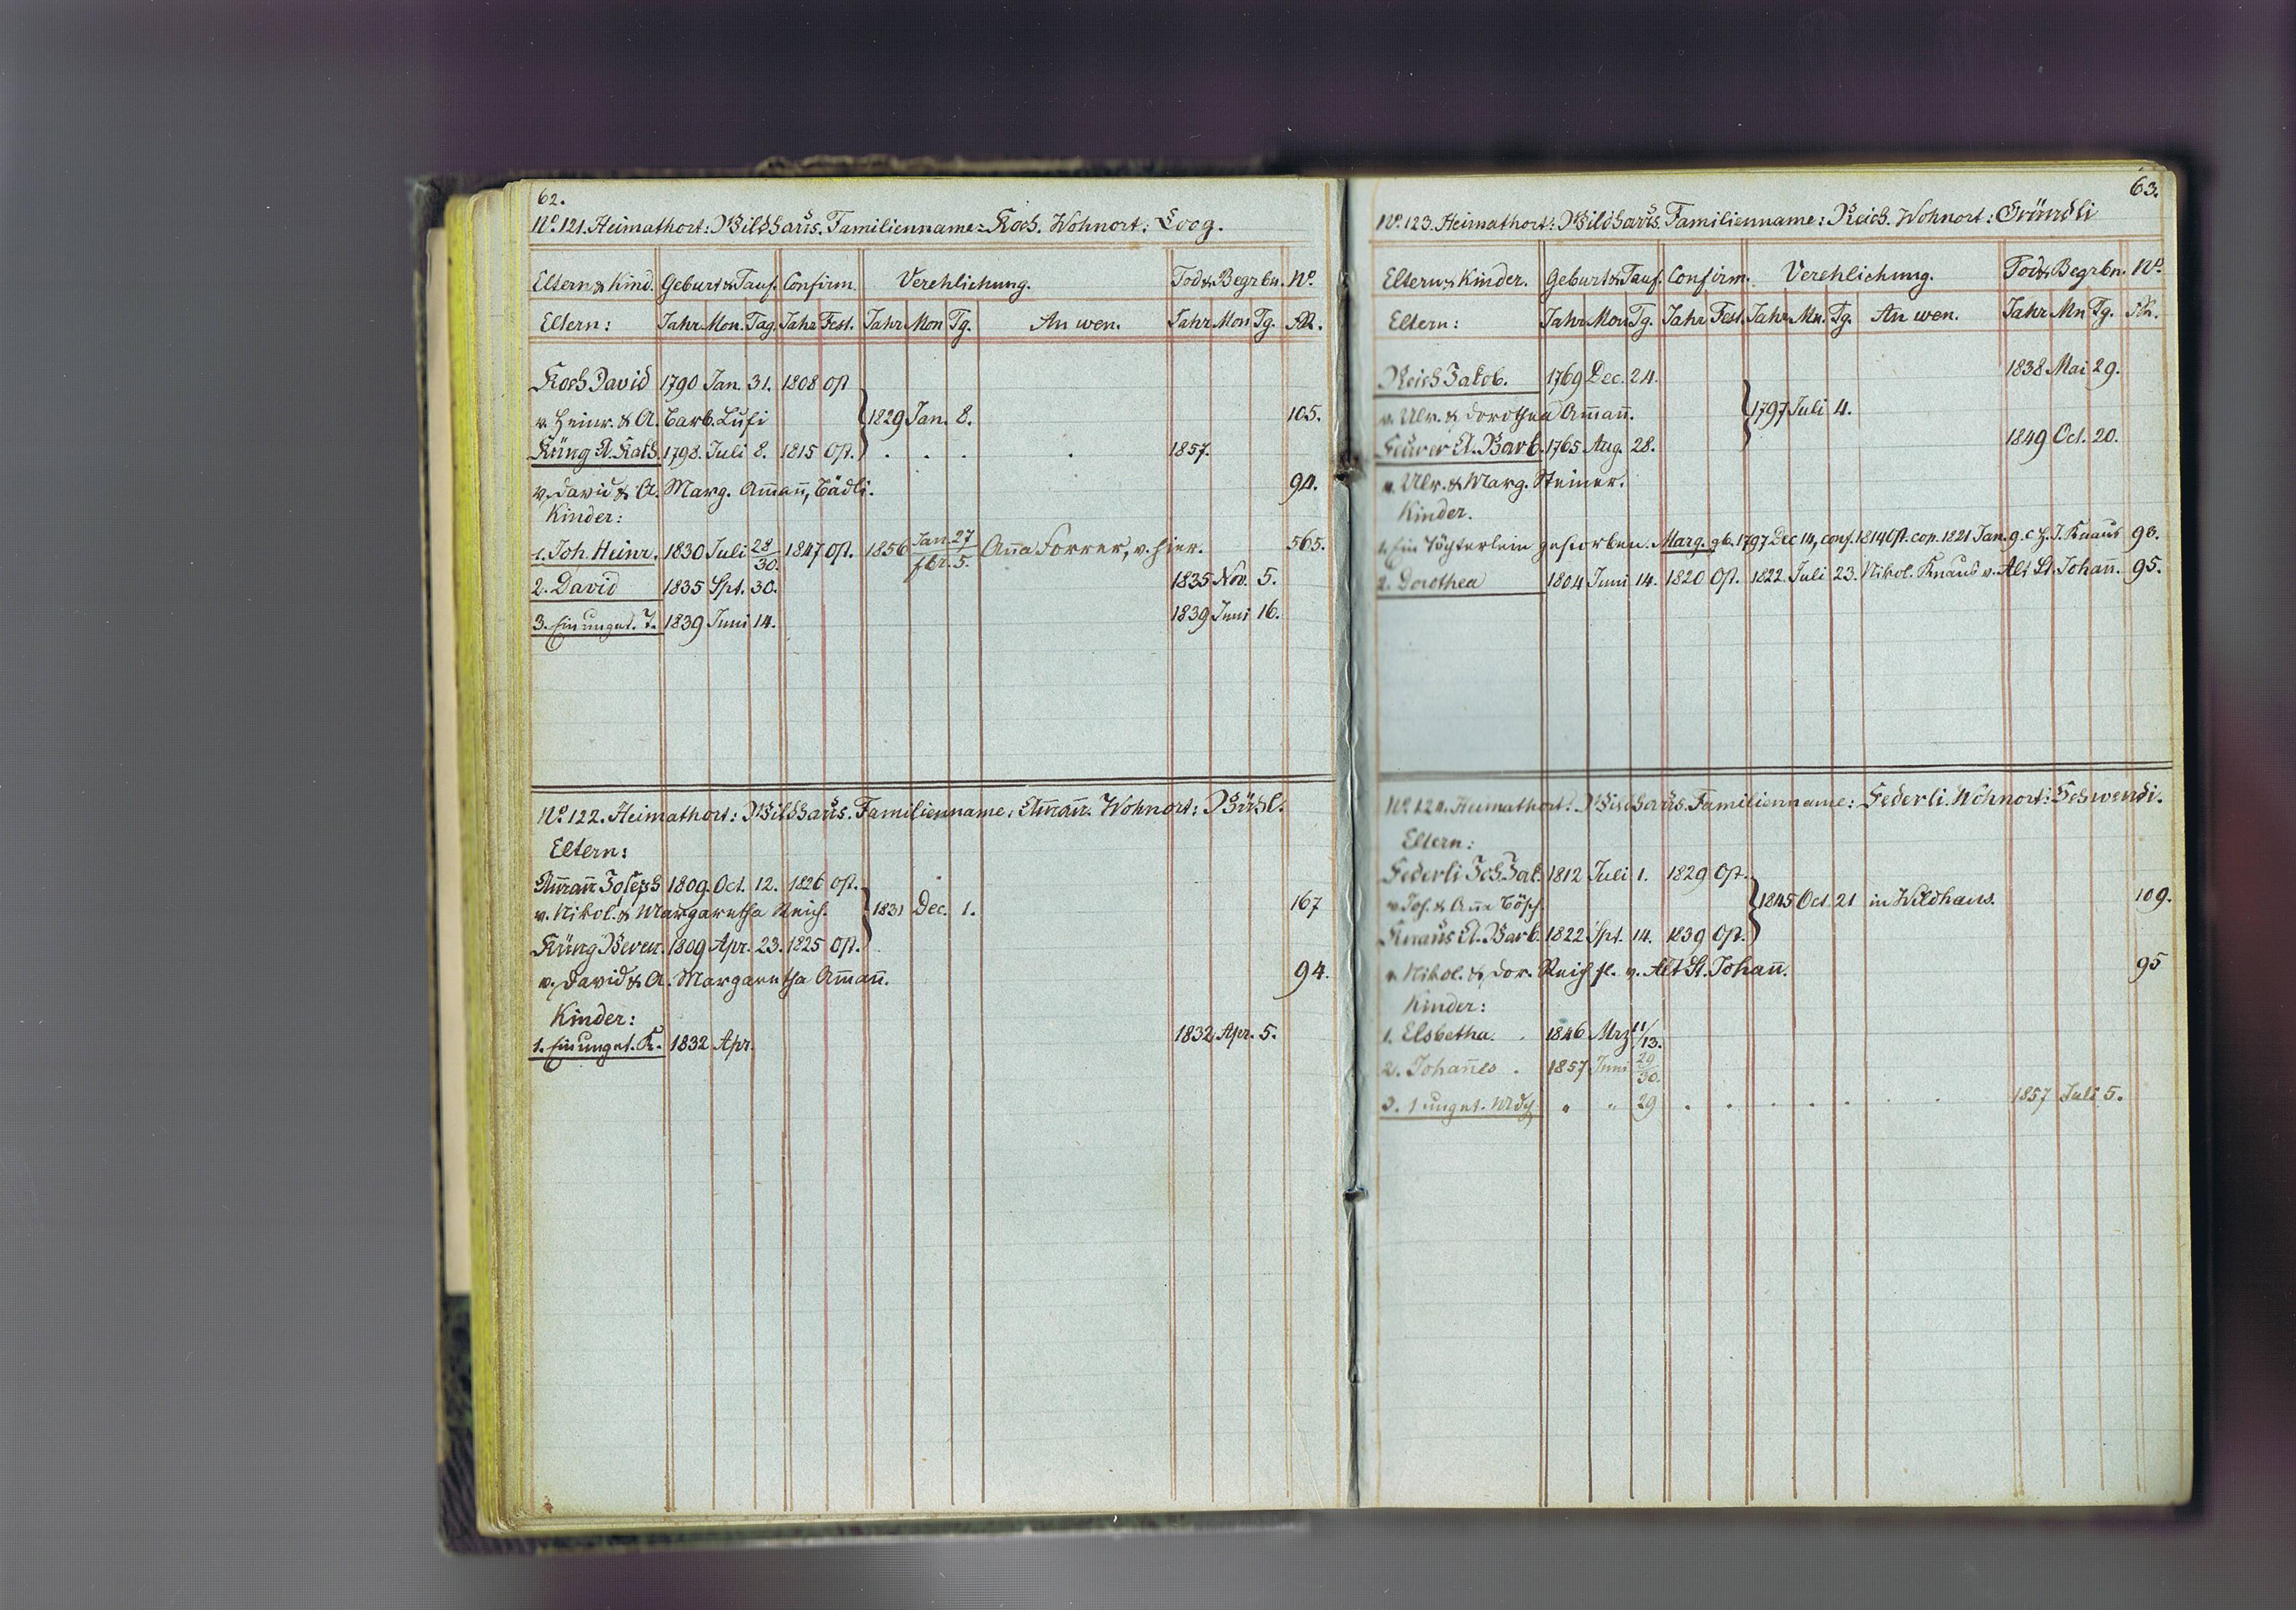 62.
No. 121. Heimathort: Wildhaus. Familienname: Koch. Wohnort: Loog.
Eltern & Kind. Geburt & Tauf. Confirm. Verehlichung. Tod & Begrbn. No.
Eltern: Jahr Mon. Tag. Jahr Fest. Jahr Mon Tg. An wen. Jahr Mon Tg.
Koch David 1790 Jan. 31. 1808 Ost
v. Heinr. & A. Barb. Lusi 1829 Jan. 8. 105.
Küng A. Kath. 1798. Juli 8. 1815 Ost. 1857.
v. David & A. Marg. Am̅an̅, Bädli. 94.
Kinder:
1. Joh. Heinr. 1830 Juli 28/30. 1847 Ost. 1856 Jan. 27/fbr. 5. An̅a Forrer, v. hier. 565.
2. David 1835 Spt. 30. 1835 Nov. 5.
3. Ein unget. T. 1839 Juni 14. 1839 Juni 16.
No. 122. Heimathort: Wildhaus. Familienname: Am̅an̅. Wohnort: Bühl.
Eltern:
Am̅an̅ Joseph 1809. Oct. 12. 1826 Ost.
v. Nikol. & Margaretha Reich. 1831 Dec. 1. 167
Küng Veren. 1809 Apr. 23. 1825 Ost.
v. David & A. Margaretha Am̅an̅. 94.
Kinder:
1. Ein unget. K. 1832 Apr. 1832 Apr. 5.
63.
No. 123. Heimathort: Wildhaus. Familienname: Reich. Wohnort: Gründli
Eltern & Kinder. Geburt & Tauf. Confirm. Verehlichung. Tod & Begrbn. No.
Eltern: Jahr Mon Tg. Jahr Fest. Jahr Mn. Tg. An wen. Jahr Mn Tg.
Reich Jakob. 1769 Dec. 24. 1838 Mai 29.
v. Ulr. & Dorothea Am̅an̅. 1797 Juli 4.
Feurer A. Barb. 1765 Aug. 28. 1849 Oct. 20.
v. Ulr. & Marg. Steiner.
Kinder.
1. Ein Töchterlein gestorben. Marg. gb. 1797 Dec 14, conf. 1814 Ost. cop. 1821 Jan. 9. c. H. J. Knaus 93.
2. Dorothea 1804 Juni 14. 1820 Ost. 1822. Juli 23. Nikol. Knaus v. Alt St. Johan̅. 95.
No. 124. Heimathort: Wildhaus. Familienname: Federli. Wohnort: Schwendi.
Eltern:
Federli Joh. Jak. 1812 Juli 1. 1829 Ost.
v. Jos. & An̅a Bösch. 1845 Oct 21 in Wildhaus. 109.
Knaus A. Barb. 1822 Spt. 14. 1839 Ost.
v. Nikol. & Dor. Reich v. Alt St. Johan̅. 95
Kinder:
1. Elsbetha. 1846 Mrz 11/13.
2. Johan̅es. 1857 Juni 29/30.
3. 1 unget. Mdch. " " 29 1857 Juli 5.